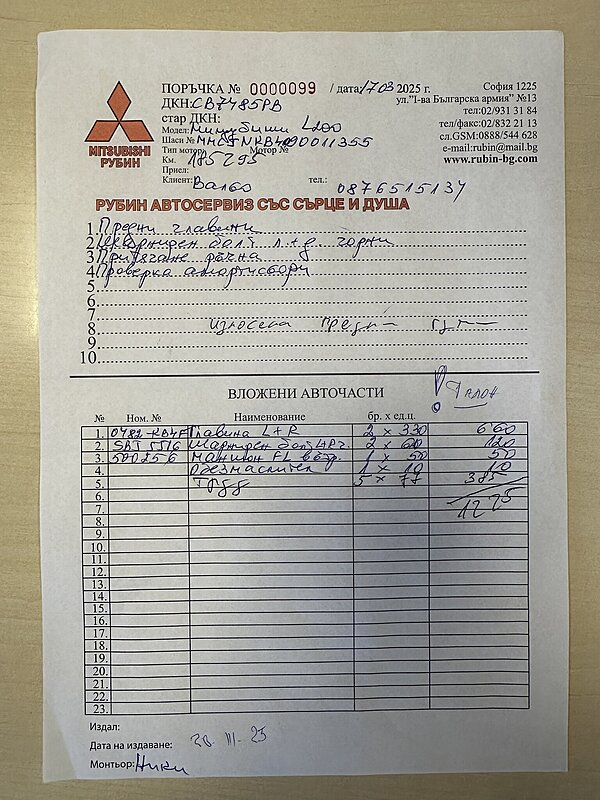 MITSUBISHI
РУБИН
ПОРЪЧКА № 0000099 / дата: 17 03 2025 г.
ДКН: СВ7485РВ
стар ДКН:
Модел: Мицубиши L200
Шаси №
Тип мотор: Мотор №
Км. 185295
Приел:
Клиент: Вальо тел.: 0876515137
София 1225
ул."І-ва Българска армия" №13
тел:02/931 31 84
тел/факс:02/832 21 13
сл.GSM:0888/544 628
e-mail:rubin@mail.bg
www.rubin-bg.com
РУБИН АВТОСЕРВИЗ СЪС СЪРЦЕ И ДУША
1. Предни главини
2. болт л.+д. горни
3. Притягане ръчна
4. Проверка амортисьори
5.
6.
7.
8. износени предни гуми
9.
10.
ВЛОЖЕНИ АВТОЧАСТИ ! Талон
№ Ном. № Наименование бр. х ед.ц.
1. Главина L+R 2 x 330 660
2. Шарнирен болт 2 x 60 120
3. 500256 Маншон FL вътр. 1 x 50 50
4. Обезмаслител 1 x 10 10
5. Труд 5 x 77 385
6. 1225
7.
8.
9.
10.
11.
12.
13.
14.
15.
16.
17.
18.
19.
20.
21.
22.
23.
Издал:
Дата на издаване: 20 III-25
Монтьор: Ники